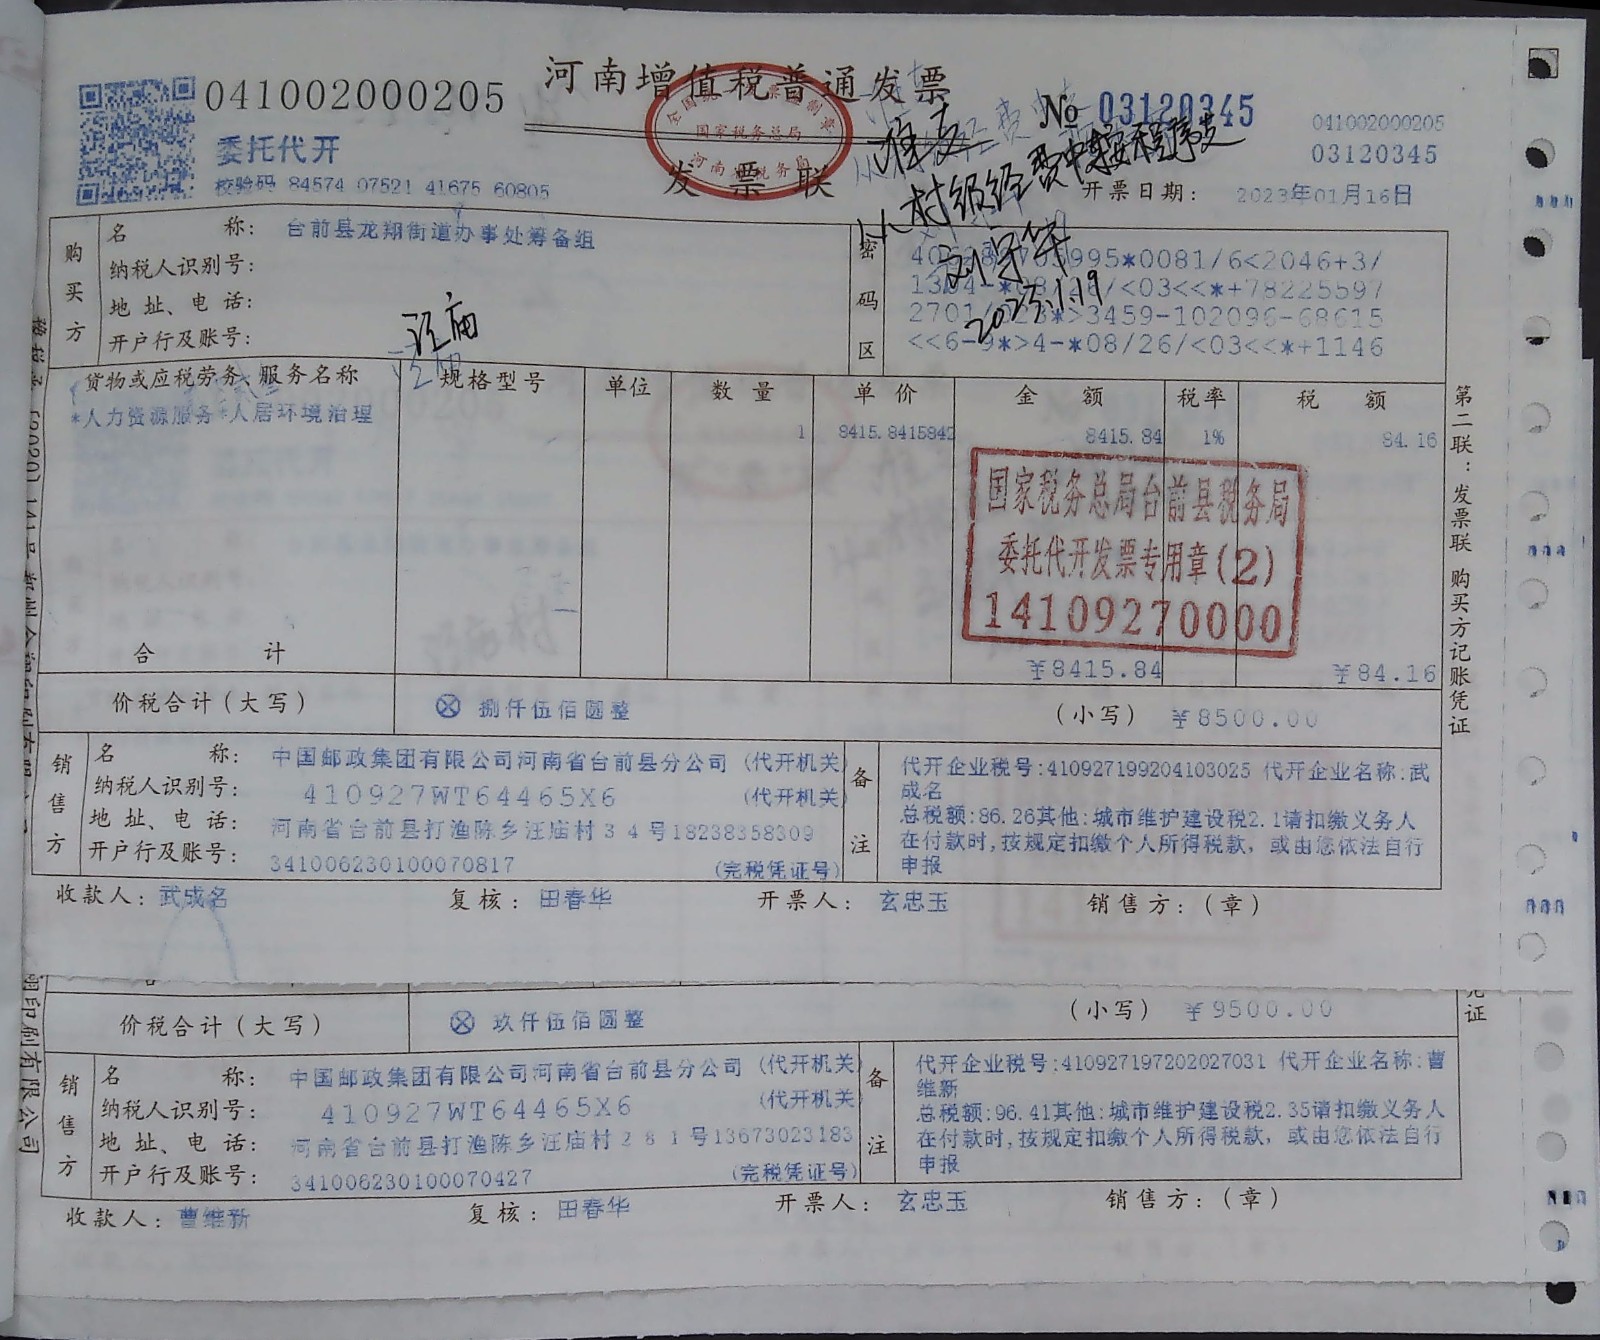 河南增值税普通发票
041002000205
No 03120345
041002000205
03120345
委托代开
校验码 84574 07521 41675 60805
全国统一发票监制章
国家税务总局
河南省税务局
发票联
开票日期: 2023年01月16日
准支
从村级经费中按程序支
2023.1.19
汪庙
购买方
名称: 台前县龙翔街道办事处筹备组
纳税人识别号:
地址、电话:
开户行及账号:
密码区
1146
货物或应税劳务、服务名称 规格型号 单位 数量 单价 金额 税率 税额
*人力资源服务*人居环境治理 1 8415.8415842 8415.84 1% 84.16
国家税务总局台前县税务局
委托代开发票专用章(2)
14109270000
合计 ¥8415.84 ¥84.16
价税合计(大写) ⊗ 捌仟伍佰圆整 (小写) ¥8500.00
销售方
名称: 中国邮政集团有限公司河南省台前县分公司 (代开机关)
纳税人识别号: 410927WT64465X6 (代开机关)
地址、电话: 河南省台前县打渔陈乡汪庙村34号18238358309
开户行及账号: 341006230100070817 (完税凭证号)
备注
代开企业税号:410927199204103025 代开企业名称:武
成名
总税额:86.26其他:城市维护建设税2.1请扣缴义务人
在付款时,按规定扣缴个人所得税款, 或由您依法自行
申报
收款人: 武成名 复核: 田春华 开票人: 玄忠玉 销售方:(章)
第二联:发票联 购买方记账凭证
价税合计(大写) ⊗ 玖仟伍佰圆整 (小写) ¥9500.00
凭证
销售方
名称: 中国邮政集团有限公司河南省台前县分公司 (代开机关)
纳税人识别号: 410927WT64465X6 (代开机关)
地址、电话: 河南省台前县打渔陈乡汪庙村281号13673023183
开户行及账号: 341006230100070427 (完税凭证号)
备注
代开企业税号:410927197202027031 代开企业名称:曹
维新
总税额:96.41其他:城市维护建设税2.35请扣缴义务人
在付款时,按规定扣缴个人所得税款, 或由您依法自行
申报
收款人: 曹维新 复核: 田春华 开票人: 玄忠玉 销售方:(章)
印刷有限公司